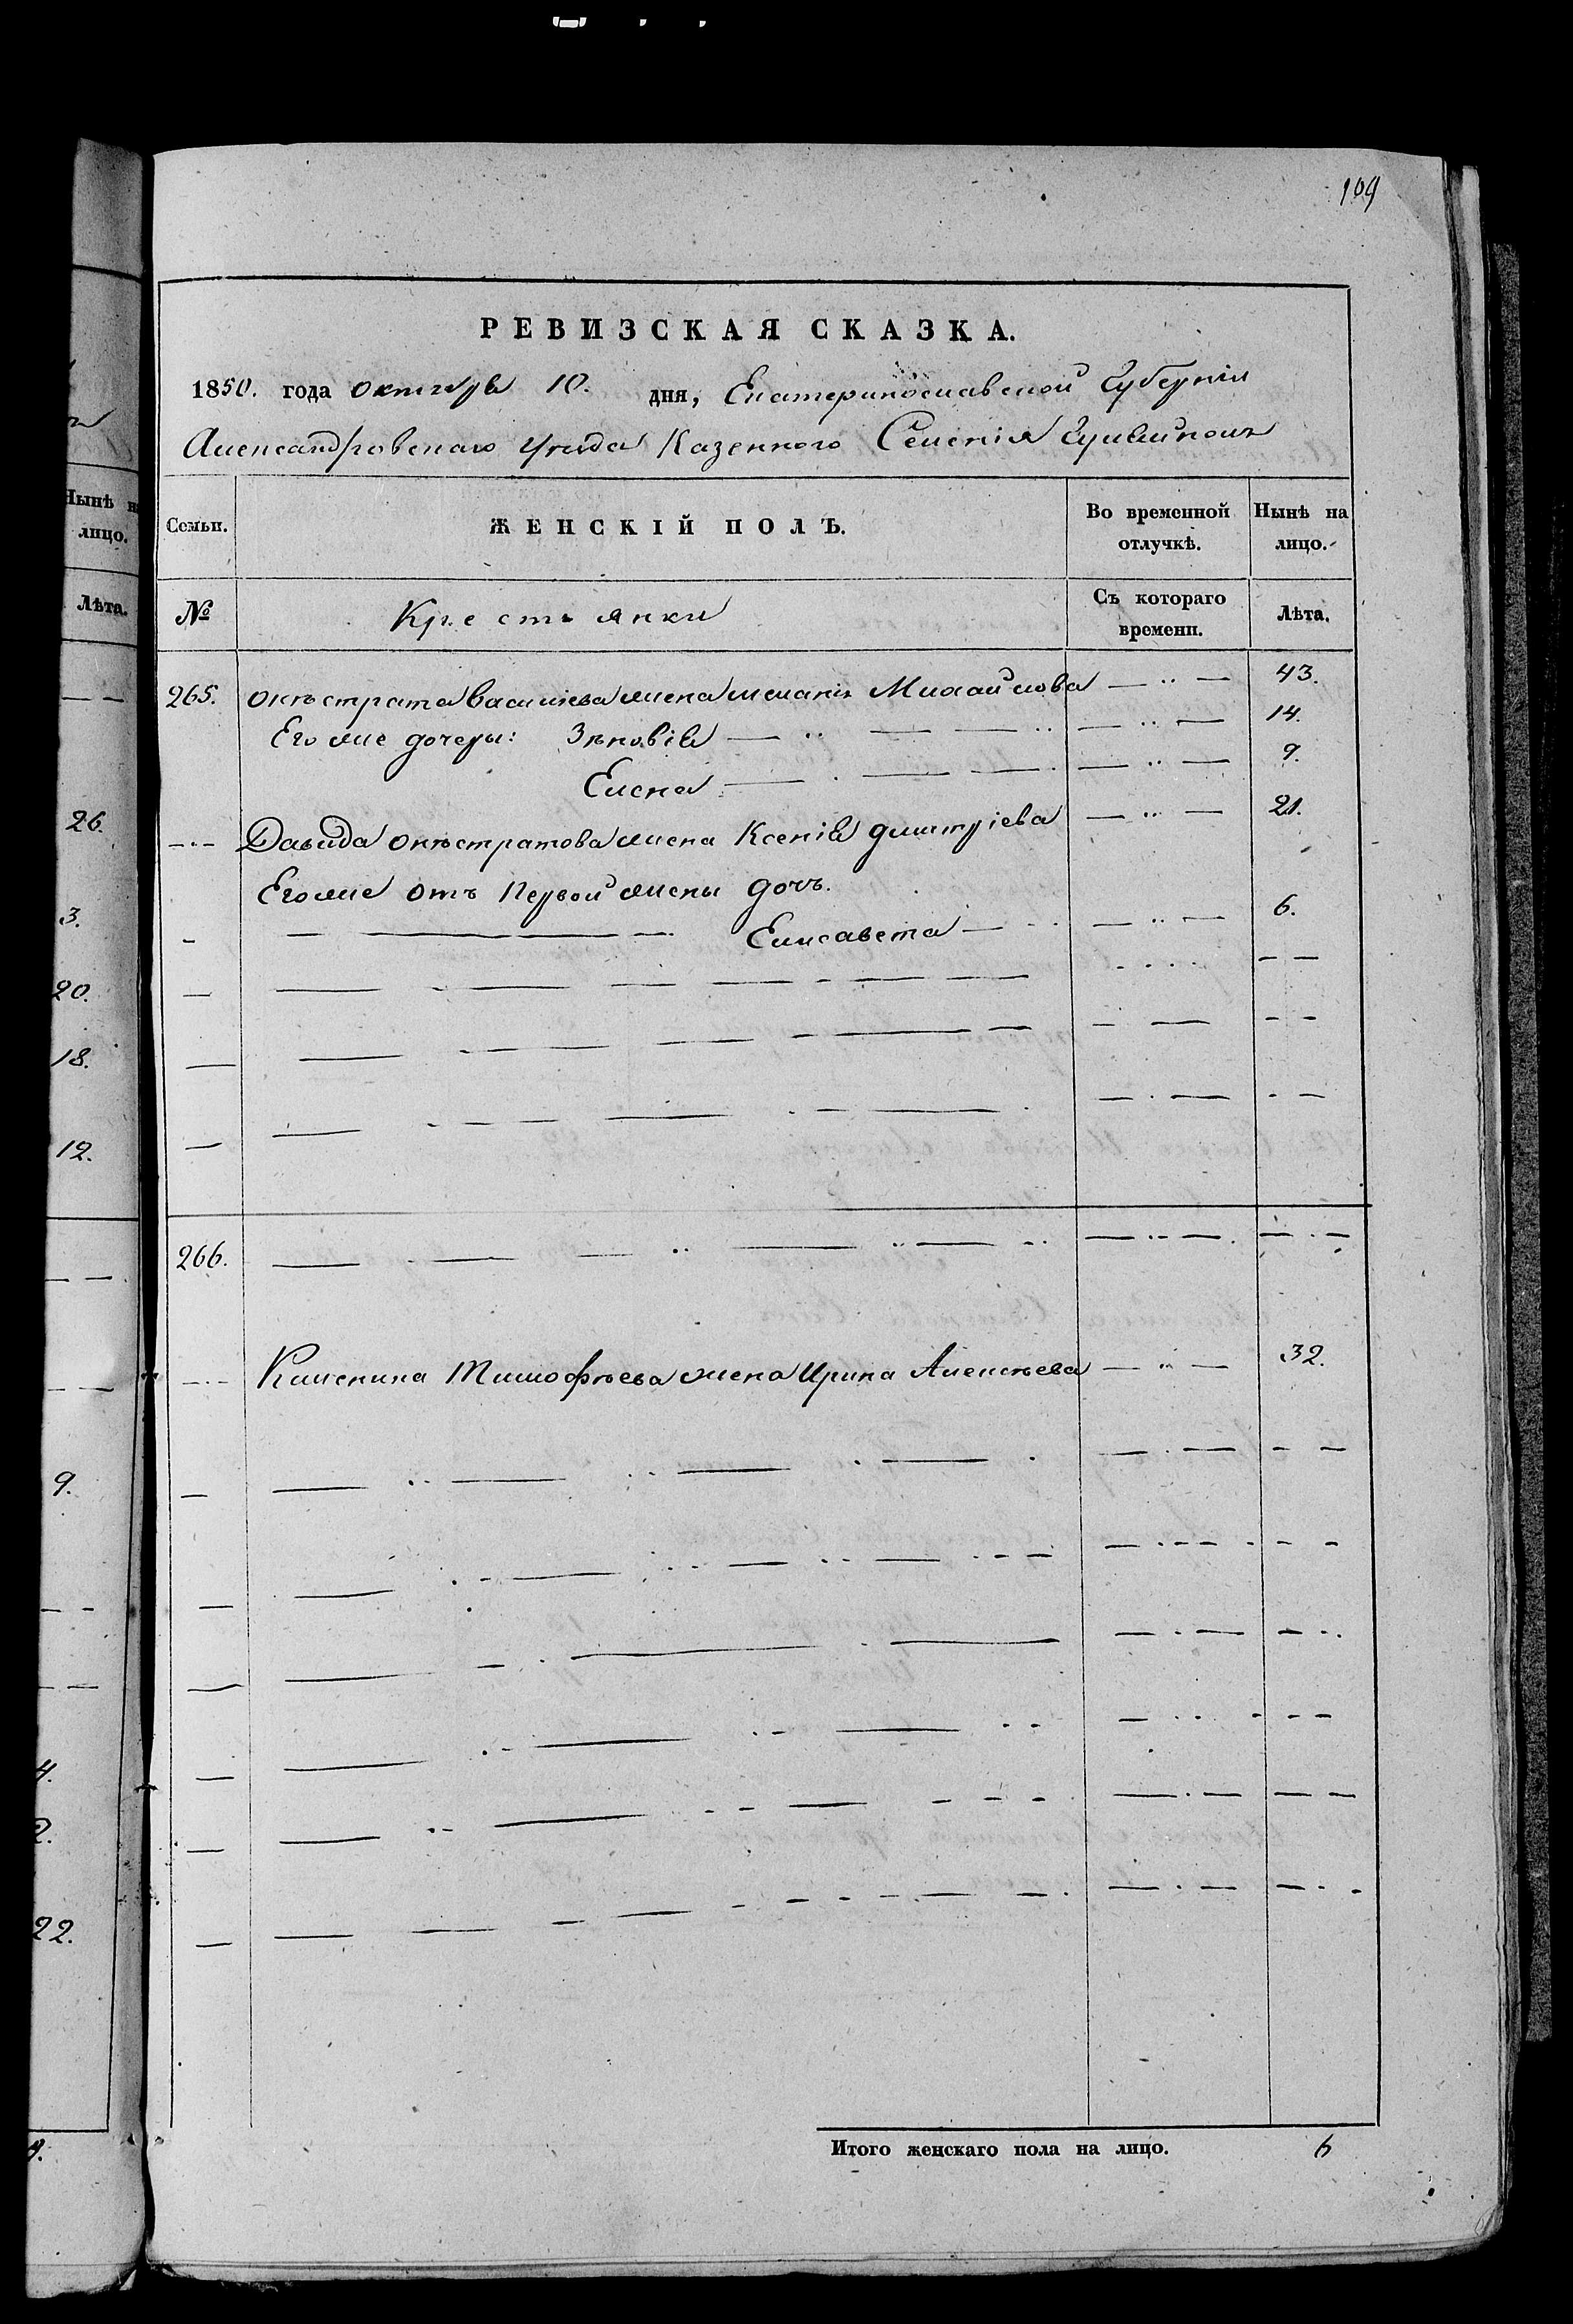 109
РЕВИЗСКАЯ СКАЗКА.
1850. года октября 10. дня, Екатеринославской Губернiи
Александровскаго уезда Казенного Селенiя
Семьи. ЖЕНСКІЙ ПОЛЪ. Во временной отлучкѣ. Нынѣ на лицо.
№ Крестьянки Съ котораго времени. Лѣта.
265. Онѣстрата Васильева жена Меланiя Михайлова — 43.
Его же дочеры: Зѣновiя — 14.
Елена — 9.
Давида Онѣстратова жена Ксенiя Дмитрiева — 21.
Его же отъ Первой жены дочь.
Елисавета — 6.
266.
Тимофѣева жена Ирина Алексѣева — 32.
Итого женскаго пола на лицо. 6
Нынѣ на
лицо.
Лѣта.
26.
3.
20.
18.
12.
9.
4.
2.
22.